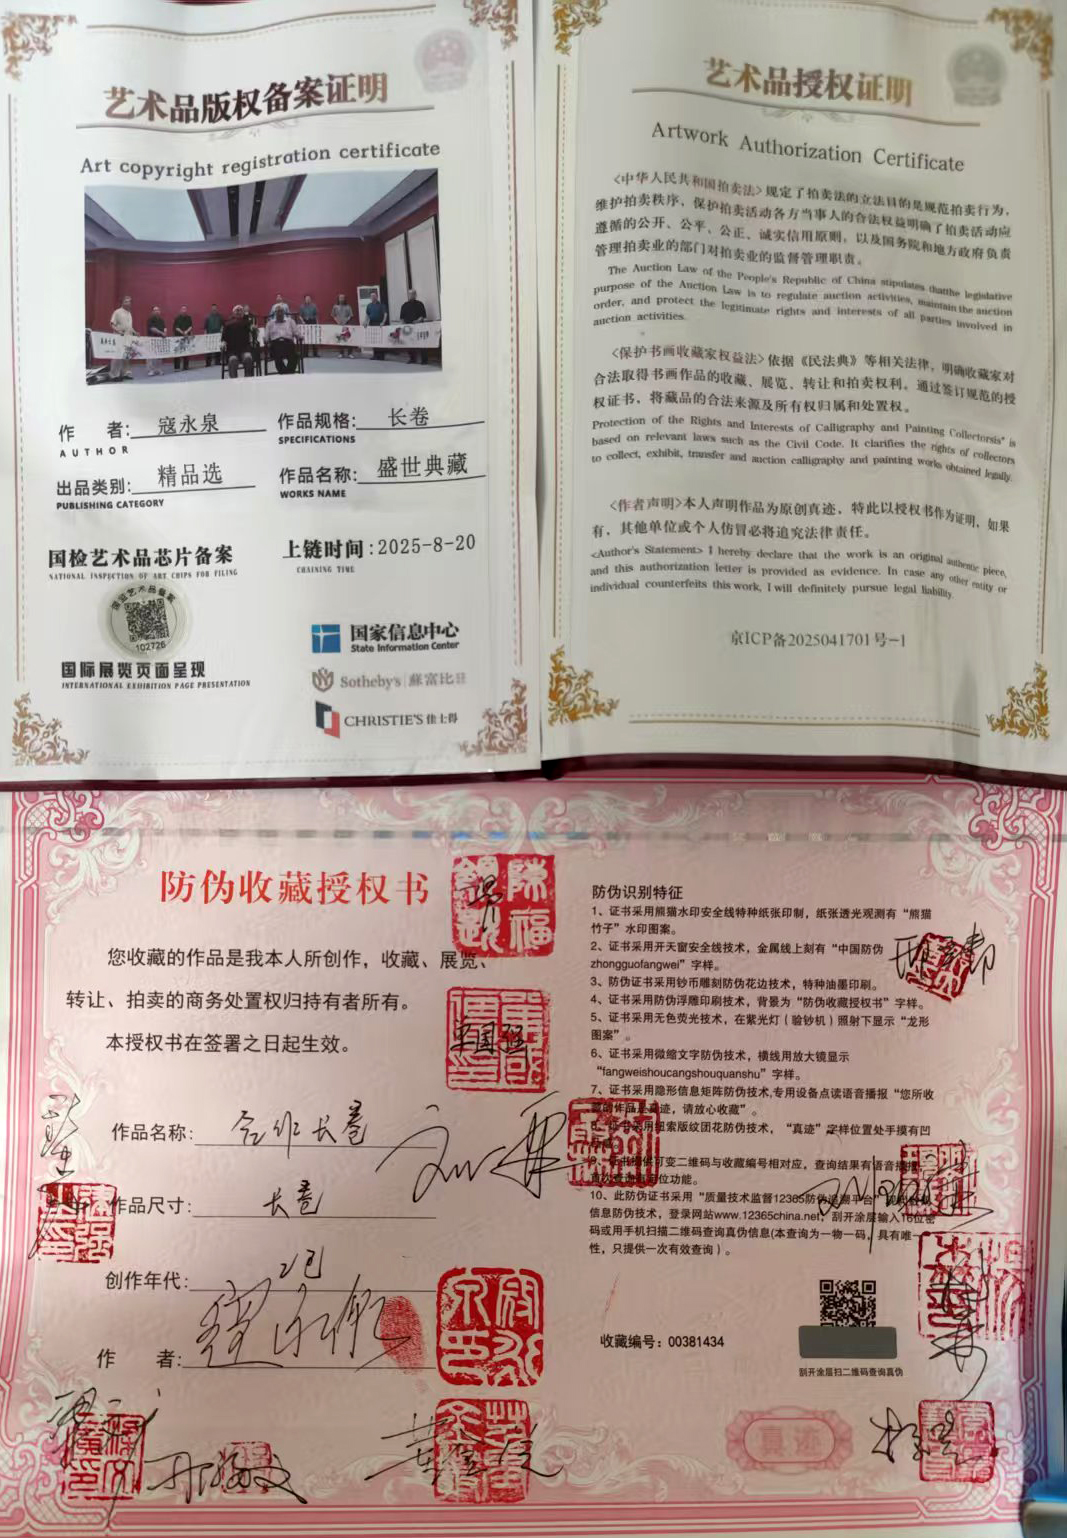 艺术品版权备案证明
Art copyright registration certificate
作 者: 寇永泉
AUTHOR
作品规格: 长卷
SPECIFICATIONS
出品类别: 精品选
PUBLISHING CATEGORY
作品名称: 盛世典藏
WORKS NAME
国检艺术品芯片备案
NATIONAL INSPECTION OF ART CHIPS FOR FILING
上链时间:2025-8-20
CHAINING TIME
国检艺术品备案
102726
国际展览页面呈现
INTERNATIONAL EXHIBITION PAGE PRESENTATION
国家信息中心
State Information Center
Sotheby's 蘇富比
CHRISTIE'S 佳士得
艺术品授权证明
Artwork Authorization Certificate
<中华人民共和国拍卖法>规定了拍卖法的立法目的是规范拍卖行为,
维护拍卖秩序,保护拍卖活动各方当事人的合法权益明确了拍卖活动应
遵循的公开、公平、公正、诚实信用原则,以及国务院和地方政府负责
管理拍卖业的部门对拍卖业的监督管理职责。
The Auction Law of the People's Republic of China stipulates thatthe legislative
purpose of the Auction Law is to regulate auction activities, maintain the auction
order, and protect the legitimate rights and interests of all parties involved in
auction activities.
<保护书画收藏家权益法>依据《民法典》等相关法律,明确收藏家对
合法取得书画作品的收藏、展览、转让和拍卖权利。通过签订规范的授
权证书,将藏品的合法来源及所有权归属和处置权。
Protection of the Rights and Interests of Calligraphy and Painting Collectorsis" is
based on relevant laws such as the Civil Code. It clarifies the rights of collectors
to collect, exhibit, transfer and auction calligraphy and painting works obtained legally.
<作者声明>本人声明作品为原创真迹,特此以授权书作为证明,如果
有,其他单位或个人仿冒必将追究法律责任。
<Author's Statement> I hereby declare that the work is an original authentic piece,
and this authorization letter is provided as evidence. In case any other entity or
individual counterfeits this work, I will definitely pursue legal liability.
京ICP备2025041701号-1
防伪收藏授权书
您收藏的作品是我本人所创作,收藏、展览、
转让、拍卖的商务处置权归持有者所有。
本授权书在签署之日起生效。
作品名称: 合作长卷
作品尺寸: 长卷
创作年代: 乙巳
作 者: 寇永泉
防伪识别特征
1、证书采用熊猫水印安全线特种纸张印制,纸张透光观测有“熊猫
竹子”水印图案。
2、证书采用开天窗安全线技术,金属线上刻有“中国防伪
zhongguofangwei”字样。
3、防伪证书采用钞币雕刻防伪花边技术,特种油墨印刷。
4、证书采用防伪浮雕印刷技术,背景为“防伪收藏授权书”字样。
5、证书采用无色荧光技术,在紫光灯(验钞机)照射下显示“龙形
图案”。
6、证书采用微缩文字防伪技术,横线用放大镜显示
“fangweishoucangshouquanshu”字样。
7、证书采用隐形信息矩阵防伪技术,专用设备点读语音播报“您所收
藏的作品是真迹,请放心收藏”。
8、证书采用纽索版纹团花防伪技术,“真迹”字样位置处手摸有凹
9、证书提供可变二维码与收藏编号相对应,查询结果有语音播报
10、此防伪证书采用“质量技术监督12365防伪追溯平台”
信息防伪技术,登录网站www.12365china.net,刮开涂层输入16位密
码或用手机扫描二维码查询真伪信息(本查询为一物一码,具有唯一
性,只提供一次有效查询)。
收藏编号:00381434
刮开涂层扫二维码查询真伪
真迹
王国强